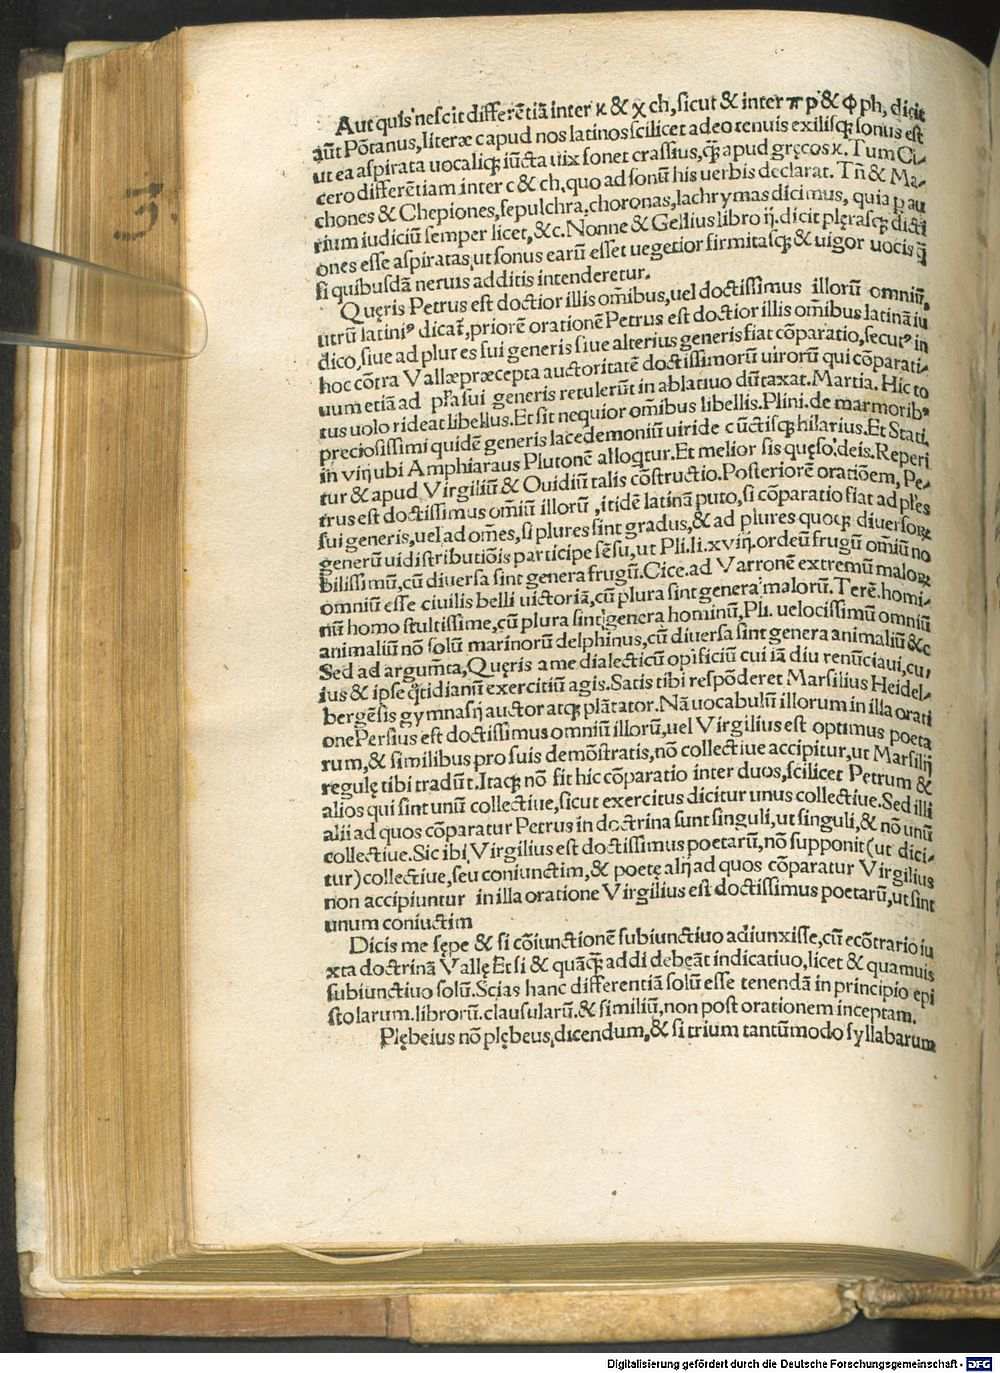 Aut quis nescit differētiā inter κ & χ ch, sicut & inter π p & φ ph, dicit
aūt Pōtanus, literæ c apud nos latinos scilicet adeo tenuis exilisqꝫ sonus est
ut ea aspirata uocaliqꝫ iūcta uix sonet crassius, q̄ꝫ apud gręcos κ. Tum Ci-
cero differētiam inter c & ch, quo ad sonū his uerbis declarat. Tn̄ & Ma-
chones & Chepiones, sepulchra, choronas, lachrymas dicimus, quia ꝑ au
rium iudiciū semper licet, &c. Nonne & Gellius libro ij. dicit plęrasqꝫ dicti
ones esse aspiratas, ut sonus earū esset uegetior firmitasqꝫ & uigor uocis q̄
si quibusdā neruis additis intenderetur.
Quęris Petrus est doctior illis om̄ibus, uel doctissimus illorū omniū,
utrū latiniꝰ dicat̄, priorē orationē Petrus est doctior illis om̄ibus latinā iu
dico, siue ad plures sui generis siue alterius generis fiat cōparatio, secutꝰ in
hoc cōtra Vallæ præcepta auctoritatē doctissimorū uirorū qui cōparati-
uum etiā ad pl̄ra sui generis retulerūt in ablatiuo dūtaxat. Martia. Hic to
tus uolo rideat libellus. Et sit nequior om̄ibus libellis. Plini. de marmoribꝰ
preciosissimi quidē generis lacedemoniū uiride cūctisqꝫ hilarius. Et Stati.
in viij ubi Amphiaraus Plutonē alloqtur. Et melior sis quęso deis. Reperi
tur & apud Virgiliū & Ouidiū talis cōstructio. Posteriorē oratiōem, Pe-
trus est doctissimus om̄iū illorū, itidē latinā puto, si cōparatio fiat ad pl̄es
sui generis, uel ad om̄es, si plures sint gradus, & ad plures quoqꝫ diuersoꝝ
generū ui distributiōis participe sēsu, ut Pli. li. xviij. ordeū frugū om̄iū no
bilissimū, cū diuersa sint genera frugū. Cice. ad Varronē extremū maloꝝ
omniū esse ciuilis belli uictoriā, cū plura sint genera malorū. Terē. homi-
nū homo stultissime, cū plura sint genera hominū, Pli. uelocissimū omniū
animaliū nō solū marinorū delphinus, cū diuersa sint genera animaliū &c
Sed ad argum̄ta, Quęris a me dialecticū opificiū cui iā diu renūciaui, cu-
ius & ipse q̄tidianū exercitiū agis. Satis tibi respōderet Marsilius Heidel-
bergēsis gymnasij auctor atqꝫ plātator. Nā uocabulū illorum in illa orati
one Persius est doctissimus omniū illorū, uel Virgilius est optimus poeta
rum, & similibus pro suis demōstratis, nō collectiue accipitur, ut Marsilij
regulę tibi tradūt. Itaqꝫ nō fit hic cōparatio inter duos, scilicet Petrum &
alios qui sint unū collectiue, sicut exercitus dicitur unus collectiue. Sed illi
alii ad quos cōparatur Petrus in doctrina sunt singuli, ut singuli, & nō unū
collectiue. Sic ibi Virgilius est doctissimus poetarū, nō supponit (ut dici-
tur) collectiue, seu coniunctim, & poetę alij ad quos cōparatur Virgilius
non accipiuntur in illa oratione Virgilius est doctissimus poetarū, ut sint
unum coniuctim
Dicis me sępe & si cōiunctionē subiunctiuo adiunxisse, cū ecōtrario iu
xta doctrinā Vallę Et si & quāq̄ꝫ addi debeāt indicatiuo, licet & quamuis
subiunctiuo solū. Scias hanc differentiā solū esse tenendā in principio epi
stolarum. librorū. clausularū. & similiū, non post orationem inceptam.
Plębeius nō plębeus, dicendum, & si trium tantūmodo syllabarum
Digitalisierung gefördert durch die Deutsche Forschungsgemeinschaft - DFG